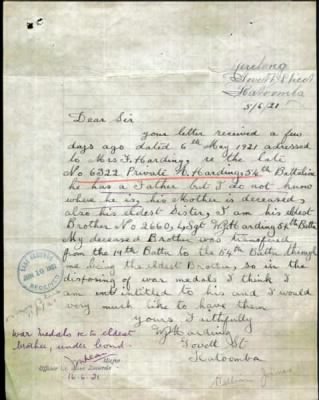 Lovett Street
Katoomba
5/6/21
Dear Sir
your letter received a few
days ago dated 6th May 1921 adressed
to Mrs F. Harding, re the late
No 6322 Private Harding, 54th Battalion
he has a Father but I do not know
where he is, his Mother is deceased,
also his eldest Sister, I am his eldest
Brother No 2660, L/Sgt W J Harding 54th Battn
My deceased Brother was transfered
from the 19th Battn to the 54th Battn through
me being the eldest Brother, so in the
disposing of war medals I think I
am intitled to this and I would
very much like to have them
Yours Faithfully
W J Harding
Lovett St
Katoomba
BASE RECORDS
JUN 10 1921
RECEIVED
War Medals &c to eldest
brother, under bond.
Major
Officer i/c Base Records
16.6.21
William James